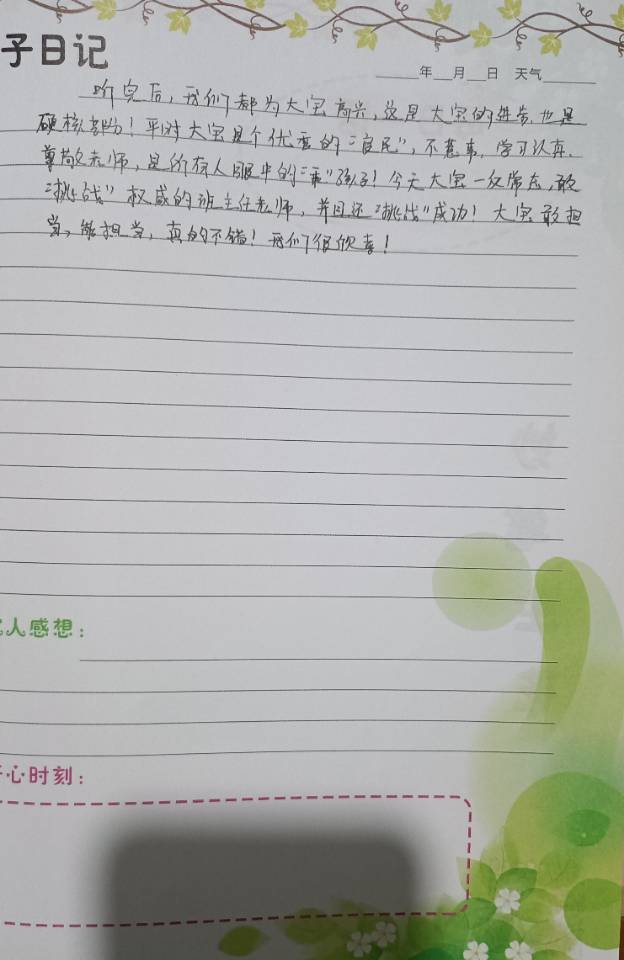 子日记
年 月 日 天气
听完后，我们都为大宝高兴，这是大宝的进步，也是
硬核帮助！平时大宝是个优秀的“良民”，不惹事，学习认真，
尊敬老师，是所有人眼中的“乖”孩子！今天大宝一反常态，敢
“挑战”权威的班主任老师，并且还“挑战”成功！大宝敢担
当，能担当，真的不错！我们很欣喜！
人感想：
心时刻：